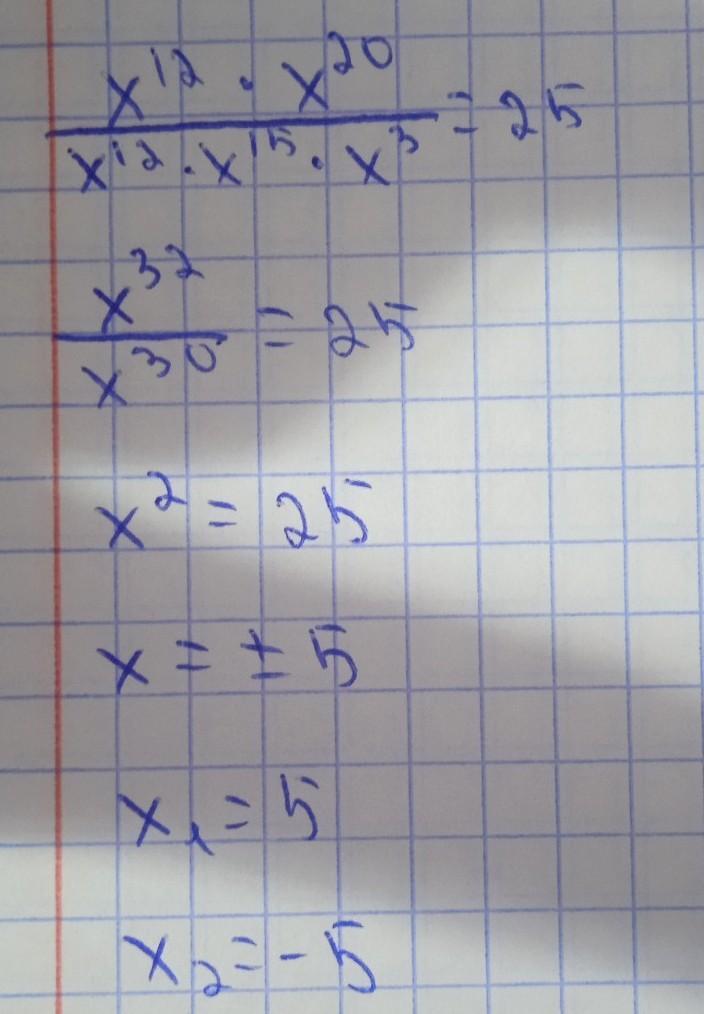 x¹² · x²⁰ / x¹² · x¹⁵ · x³ = 25
x³² / x³⁰ = 25
x² = 25
x = ± 5
x₁ = 5
x₂ = - 5